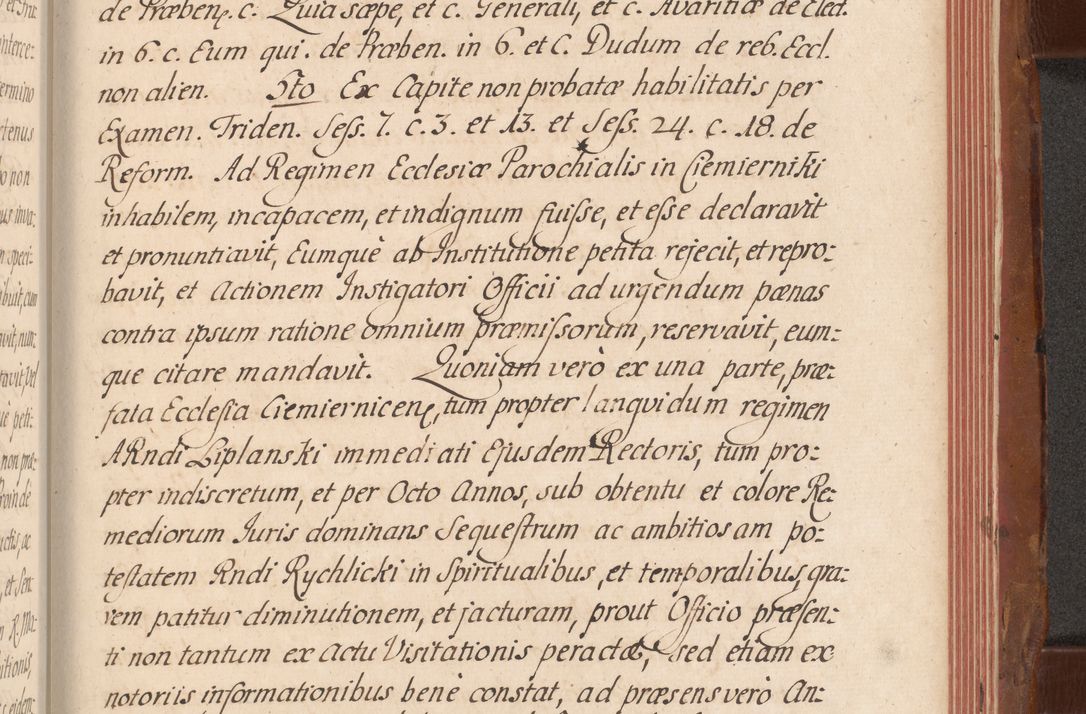 de Præben. c. Quia sæpe, et c. Generali, et c. Avaritiæ de Elect.
in 6. c. Eum qui. de Præben. in 6. et C. Dudum de reb. Eccl.
non alien. 5to Ex Capite non probatæ habilitatis per
Examen. Triden. Sess. 7. c. 3. et 13. et Sess. 24. c. 18. de
Reform. Ad Regimen Ecclesiæ Parochialis in Ciemierniki
inhabilem, incapacem, et indignum fuisse, et esse declaravit
et pronuntiavit, Eumquè ab Institutione petita rejecit, et repro:
bavit, et Actionem Instigatori Officii ad urgendum pænas
contra ipsum ratione omnium præmissorum, reservavit, eum:
que citare mandavit. Quoniam verò ex una parte, præ:
fata Ecclesia Ciemiernicen, tum propter languidum regimen
ARndi Liplanski immediati Ejusdem Rectoris, tum pro:
pter indiscretum, et per Octo Annos, sub obtentu et colore Re:
mediorum Iuris dominans Sequestrum ac ambitiosam po:
testatem Rndi Rychlicki in Spiritualibus, et temporalibus, gra:
vem patitur diminutionem, et jacturam, prout Officio præsen:
ti non tantum ex Actu Visitationis peractæ, sed etiam ex
notoriis informationibus benè constat, ad præsens verò An: